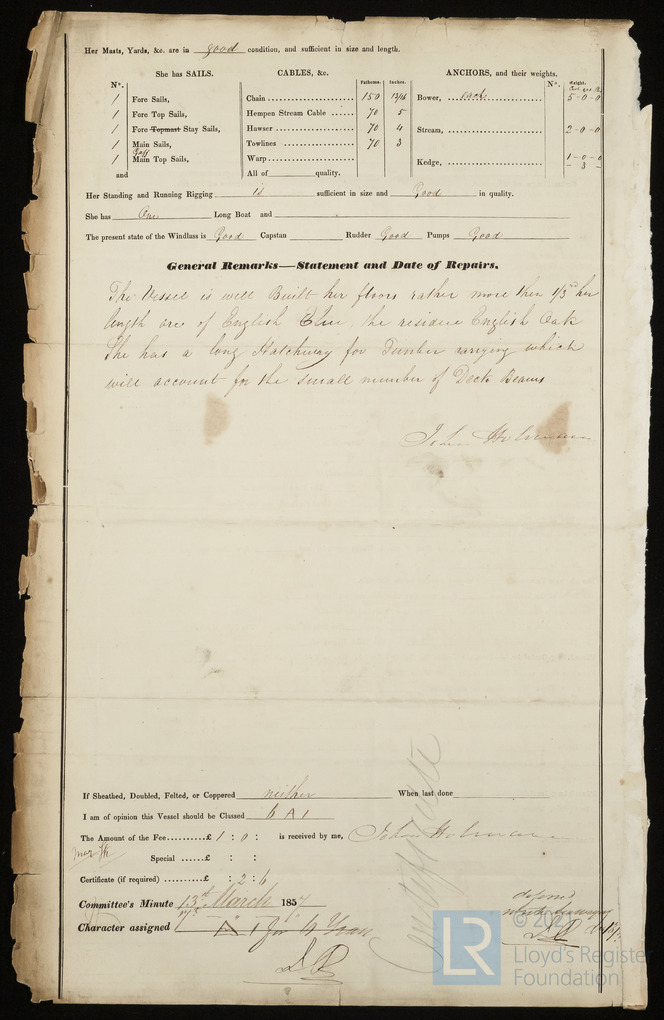 Her Masts, Yards, &c. are in good condition, and sufficient in size and length.
She has SAILS.
CABLES, &c.
Fathoms. Inches.
ANCHORS, and their weights.
Nº. Weight.
Nº.
1 Fore Sails,
1 Fore Top Sails,
1 Fore Topmast Stay Sails,
1 Main Sails,
Gaff
1 Main Top Sails,
and
Chain 150 13/16
Hempen Stream Cable 70 5
Hawser 70 4
Towlines 70 3
Warp
All of quality.
Bower, each 5-0-0
Stream, 2-0-0
Kedge, 1-0-0
- 3 -
Her Standing and Running Rigging is sufficient in size and Good in quality.
She has One Long Boat and
The present state of the Windlass is Good Capstan Rudder Good Pumps Good
General Remarks—Statement and Date of Repairs.
The Vessel is well Built her floors rather more than 1/3rd her
length are of English Elm, the residue English Oak
She has a long Hatchway for Timber carrying which
will account for the small number of Deck Beams
John Holman
If Sheathed, Doubled, Felted, or Coppered neither When last done
I am of opinion this Vessel should be Classed 6 A 1
The Amount of the Fee..........£ 1 : 0 : is received by me, John Holman
Special ......£ : :
Certificate (if required) .........£ : 2 : 6
Committee's Minute 13th March 1857
Character assigned A 1 for 4 Years
deferred
© 202
LR
Lloyd's Register
Foundation